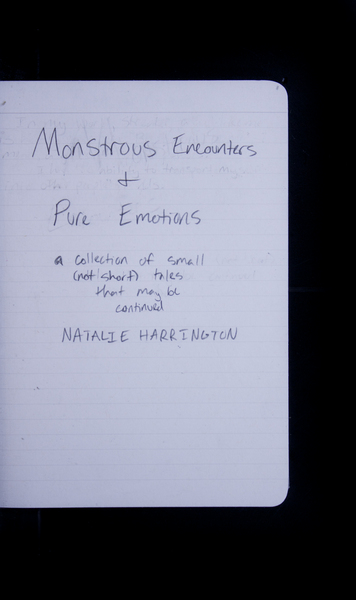 Monstrous Encounters
+
Pure Emotions
a collection of small
(not short) tales
that may be
continued
NATALIE HARRINGTON